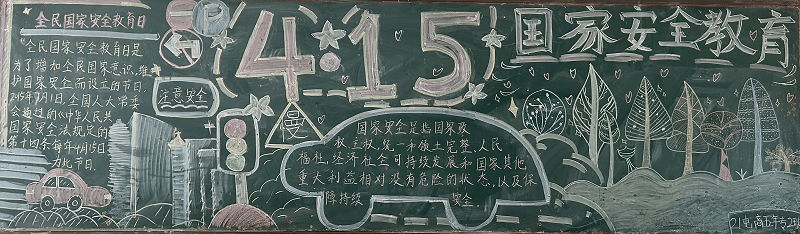 全民国家安全教育日
"全民国家安全教育日是
为了增加全民国家意识,维
护国家安全而设立的节日.
2015年7月1日,全国人大常委
会通过的《中华人民共
国家安全法规定的
第十四条每年4月15日
为此节日.
P
注意安全
4·15
国家安全教育
慢
国家安全是指国家政
权主权,统一和领土完整,人民
福祉,经济社会可持续发展和国家其他
重大利益相对没有危险的状态,以及保
障持续 安全
21电商五年专2班